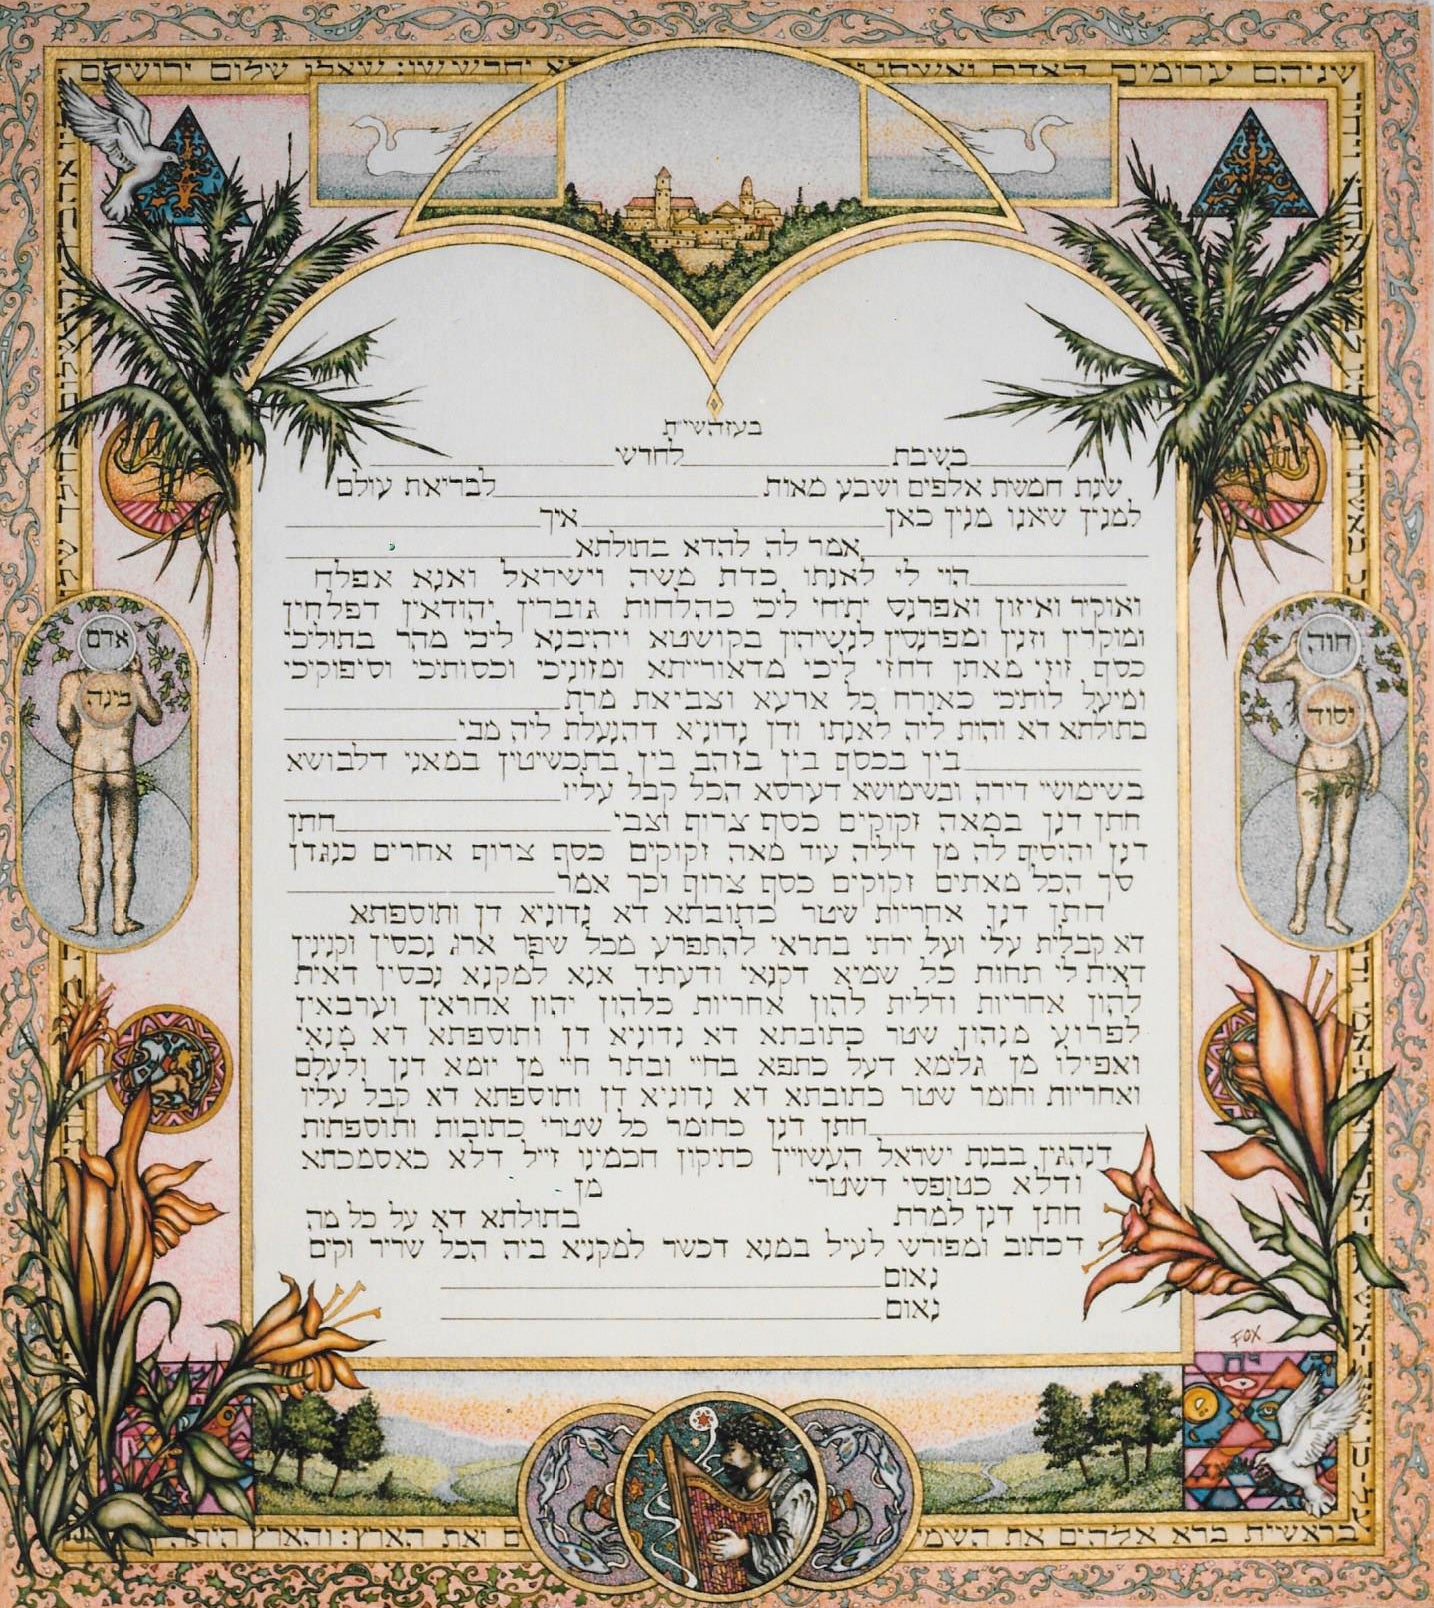 שניהם ערומים האדם ואשתו
שאלו שלום ירושלם
בעזהשי״ת
בשבת לחדש
שנת חמשת אלפים ושבע מאות לבריאת עולם
למנין שאנו מנין כאן איך
אמר לה להדא בתולתא
הוי לי לאנתו כדת משה וישראל ואנא אפלח
ואוקיר ואיזון ואפרנס יתיכי ליכי כהלכות גוברין יהודאין דפלחין
ומוקרין וזנין ומפרנסין לנשיהון בקושטא ויהיבנא ליכי מהר בתוליכי
כסף זוזי מאתן דחזי ליכי מדאורייתא ומזוניכי וכסותיכי וסיפוקיכי
ומיעל לותיכי כאורח כל ארעא וצביאת מרת
בתולתא דא והות ליה לאנתו ודן נדוניא דהנעלת ליה מבי
בין בכסף בין בזהב בין בתכשיטין במאני דלבושא
בשימושי דירה ובשימושא דערסא הכל קבל עליו
חתן דנן במאה זקוקים כסף צרוף וצבי חתן
דנן והוסיף לה מן דיליה עוד מאה זקוקים כסף צרוף אחרים כנגדן
סך הכל מאתים זקוקים כסף צרוף וכך אמר
חתן דנן אחריות שטר כתובתא דא נדוניא דן ותוספתא
דא קבלית עלי ועל ירתי בתראי להתפרע מכל שפר ארג נכסין וקנינין
דאית לי תחות כל שמיא דקנאי ודעתיד אנא למקנא נכסין דאית
להון אחריות ודלית להון אחריות כלהון יהון אחראין וערבאין
לפרוע מנהון שטר כתובתא דא נדוניא דן ותוספתא דא מנאי
ואפילו מן גלימא דעל כתפא בחיי ובתר חיי מן יומא דנן ולעלם
ואחריות וחומר שטר כתובתא דא נדוניא דן ותוספתא דא קבל עליו
חתן דנן כחומר כל שטרי כתובות ותוספתות
דנהגין בבנת ישראל העשויין כתיקון חכמינו ז״ל דלא כאסמכתא
ודלא כטופסי דשטרי מן
חתן דנן למרת בתולתא דא על כל מה
דכתוב ומפורש לעיל במנא דכשר למקניא ביה הכל שריר וקים
נאום
נאום
אדם
בינה
חוה
יסוד
FOX
בראשית ברא אלהים את השמי
ואת הארץ: והארץ היתה